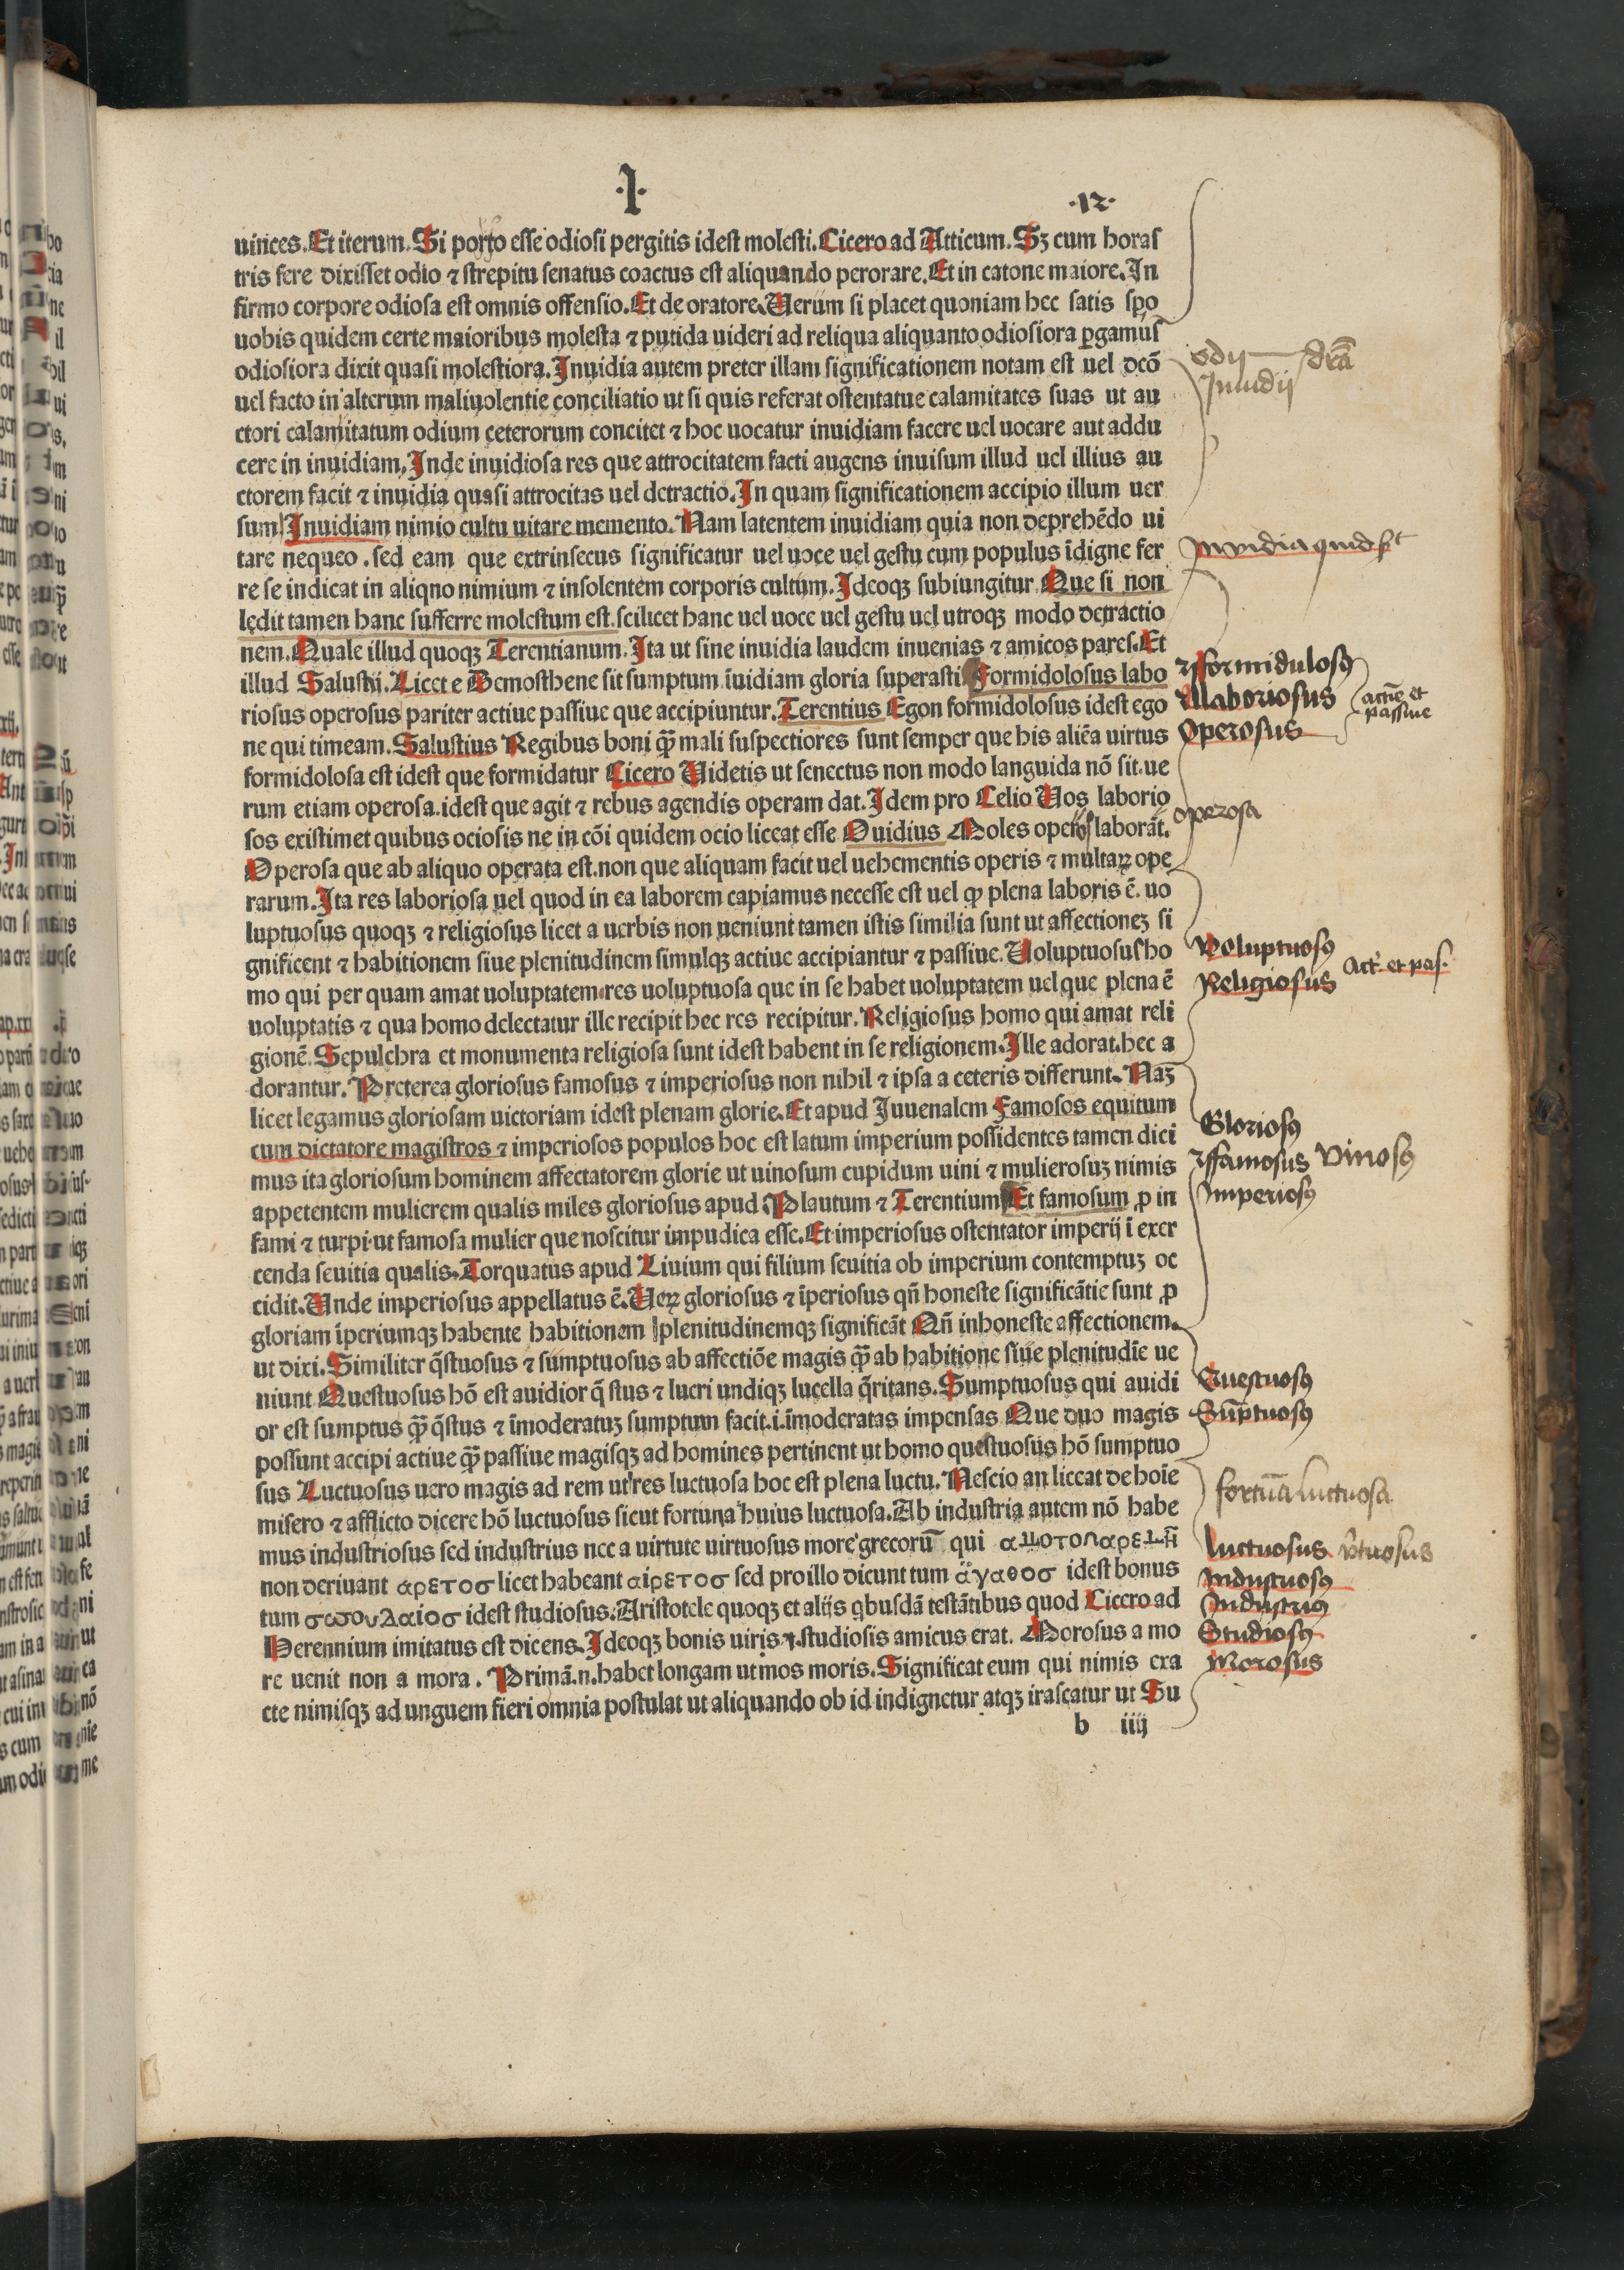 ·I·
·12·
uinces. Et iterum. Si porro esse odiosi pergitis idest molesti. Cicero ad Atticum. Sꝫ cum horas
tris fere dixisset odio ⁊ strepitu senatus coactus est aliquando perorare. Et in catone maiore. In
firmo corpore odiosa est omnis offensio. Et de oratore. Uerum si placet quoniam hec satis spo
uobis quidem certe maioribus molesta ⁊ putida uideri ad reliqua aliquanto odiosiora ꝑgamus
odiosiora dixit quasi molestiora. Inuidia autem preter illam significationem notam est uel dcō
uel facto in alterum maliuolentie conciliatio ut si quis referat ostentatue calamitates suas ut au
ctori calamitatum odium ceterorum concitet ⁊ hoc uocatur inuidiam facere uel uocare aut addu
cere in inuidiam. Inde inuidiosa res que attrocitatem facti augens inuisum illud uel illius au
ctorem facit ⁊ inuidia quasi attrocitas uel detractio. In quam significationem accipio illum uer
sum Inuidiam nimio cultu uitare memento. Nam latentem inuidiam quia non deprehēdo ui
tare nequeo. sed eam que extrinsecus significatur uel uoce uel gestu cum populus īdigne fer
re se indicat in aliqno nimium ⁊ insolentem corporis cultum. Ideoqꝫ subiungitur Que si non
lędit tamen hanc sufferre molestum est. scilicet hanc uel uoce uel gestu uel utroqꝫ modo detractio
nem. Quale illud quoqꝫ Terentianum. Ita ut sine inuidia laudem inuenias ⁊ amicos pares. Et
illud Salustij. Licet e Demosthene sit sumptum īuidiam gloria superasti Formidolosus labo
riosus operosus pariter actiue passiue que accipiuntur. Terentius Egon formidolosus idest ego
ne qui timeam. Salustius Regibus boni ꝙ̄ mali suspectiores sunt semper que his aliēa uirtus
formidolosa est idest que formidatur Cicero Uidetis ut senectus non modo languida nō sit. ue
rum etiam operosa. idest que agit ⁊ rebus agendis operam dat. Idem pro Celio Uos laborio
sos existimet quibus ociosis ne in cōi quidem ocio liceat esse Ouidius Moles laborāt.
Operosa que ab aliquo operata est. non que aliquam facit uel uehementis operis ⁊ multaꝝ ope
rarum. Ita res laboriosa uel quod in ea laborem capiamus necesse est uel ꝙ plena laboris ē. uo
luptuosus quoqꝫ ⁊ religiosus licet a uerbis non ueniunt tamen istis similia sunt ut affectioneꝫ si
gnificent ⁊ habitionem siue plenitudinem simulqꝫ actiue accipiantur ⁊ passiue. Uoluptuosus ho
mo qui per quam amat uoluptatem. res uoluptuosa que in se habet uoluptatem uel que plena ē
uoluptatis ⁊ qua homo delectatur ille recipit hec res recipitur. Religiosus homo qui amat reli
gionē. Sepulchra et monumenta religiosa sunt idest habent in se religionem. Ille adorat. hec a
dorantur. Preterea gloriosus famosus ⁊ imperiosus non nihil ⁊ ipsa a ceteris differunt. Naꝫ
licet legamus gloriosam uictoriam idest plenam glorie. Et apud Juuenalem Famosos equitum
cum dictatore magistros ⁊ imperiosos populos hoc est latum imperium possidentes tamen dici
mus ita gloriosum hominem affectatorem glorie ut uinosum cupidum uini ⁊ mulierosuꝫ nimis
appetentem mulierem qualis miles gloriosus apud Plautum ⁊ Terentium Et famosum ꝓ in
fami ⁊ turpi ut famosa mulier que noscitur impudica esse. Et imperiosus ostentator imperij ī exer
cenda seuitia qualis. Torquatus apud Liuium qui filium seuitia ob imperium contemptuꝫ oc
cidit. Unde imperiosus appellatus ē. Ueꝝ gloriosus ⁊ īperiosus qñ honeste significātie sunt ꝓ
gloriam īperiumqꝫ habente habitionem plenitudinemqꝫ significāt Qñ inhoneste affectionem.
ut dixi. Similiter q̄stuosus ⁊ sumptuosus ab affectiōe magis ꝙ̄ ab habitione siue plenitudīe ue
niunt Questuosus hō est auidior q̄stus ⁊ lucri undiqꝫ lucella q̄ritans. Sumptuosus qui auidi
or est sumptus ꝙ̄ q̄stus ⁊ īmoderatuꝫ sumptum facit. i. īmoderatas impensas Que duo magis
possunt accipi actiue ꝙ̄ passiue magisqꝫ ad homines pertinent ut homo questuosus hō sumptuo
sus Luctuosus uero magis ad rem ut res luctuosa hoc est plena luctu. Nescio an liceat de hoīe
misero ⁊ afflicto dicere hō luctuosus sicut fortuna huius luctuosa. Ab industria autem nō habe
mus industriosus sed industrius nec a uirtute uirtuosus more grecorū qui
non deriuant αρετοσ licet habeant αιρετοσ sed pro illo dicunt tum αγαθοσ idest bonus
tum σωουδαιοσ idest studiosus. Aristotele quoqꝫ et alijs qbusdā testātibus quod Cicero ad
Herennium imitatus est dicens. Ideoqꝫ bonis uiris ⁊ studiosis amicus erat. Morosus a mo
re uenit non a mora. Primā. n. habet longam ut mos moris. Significat eum qui nimis exa
cte nimisqꝫ ad unguem fieri omnia postulat ut aliquando ob id indignetur atqꝫ irascatur ut Su
b iiij
odij
Inuidij
drā
Inuidia quid
formidulosꝰ
laboriosus
operosus
actiue et
passiue
operosa
Voluptuosꝰ
Religiosus
Act. et pas.
Gloriosꝰ
famosus vinosꝰ
Imperiosꝰ
Questuosꝰ
Sūptuosꝰ
fortuna luctuosa
luctuosus
Industrius
Studiosꝰ
Morosus